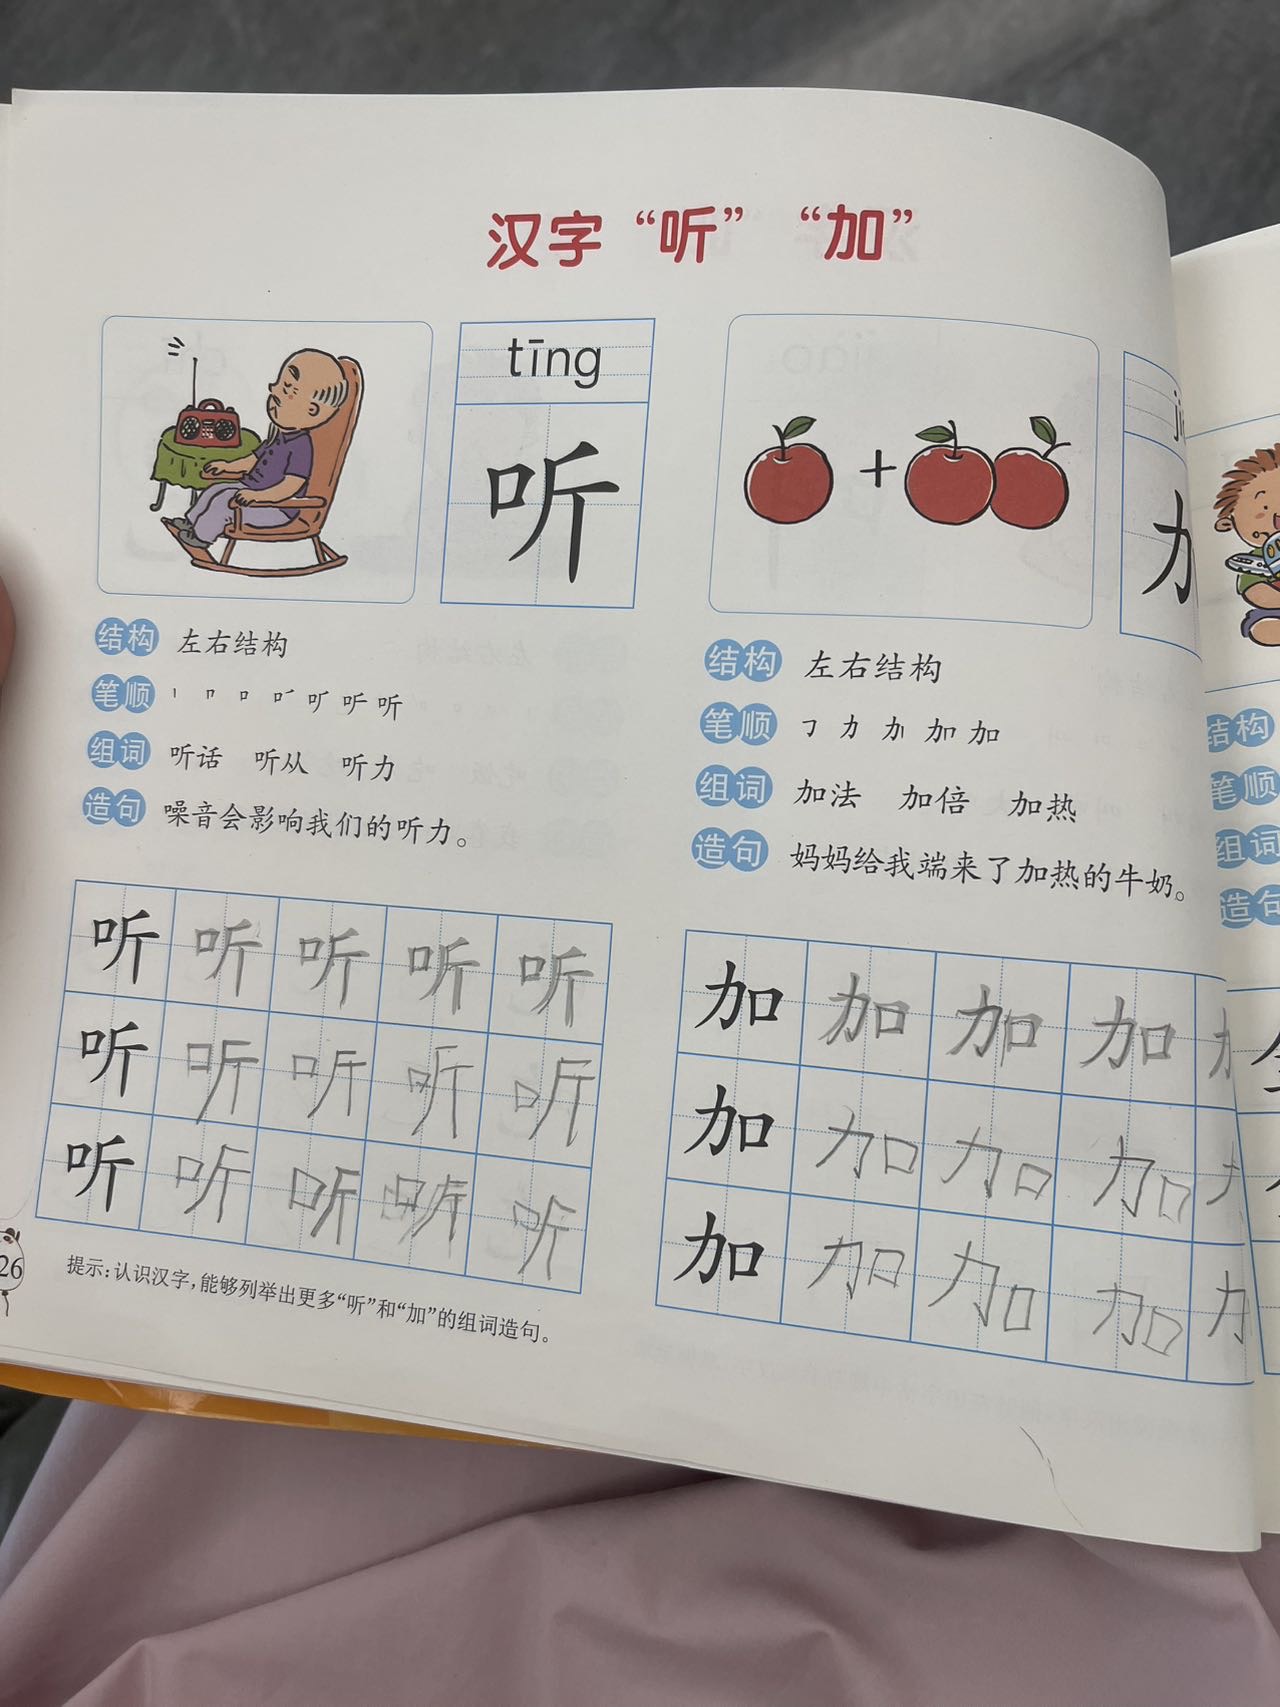 汉字 “听” “加”
tīng
听
结构 左右结构
笔顺 丨 𠃍 口 口´ 吖 听 听
组词 听话 听从 听力
造句 噪音会影响我们的听力。
听 听 听 听 听
听 听 听 听 听
听 听 听 听 听
提示：认识汉字，能够列举出更多“听”和“加”的组词造句。
26
结构 左右结构
笔顺 𠃌 力 加 加 加
组词 加法 加倍 加热
造句 妈妈给我端来了加热的牛奶。
加 加 加 加
加 加 加 加
加 加 加 加
结构
笔顺
组词
造句